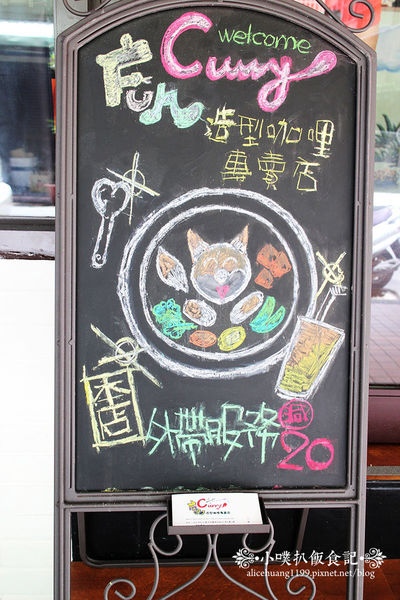 welcome
瘋 Curry
Fun
造型咖哩
專賣店
本店
外帶服務 減20
Curry
小噗扒飯食記
alicehuang1199.pixnet.net/blog